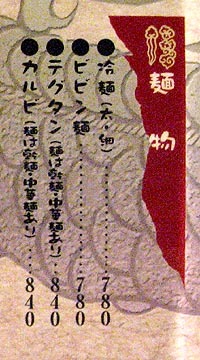 麺物
●冷麺(太・細)………780
●ビビン麺…………780
●テグタン(麺は乾麺・中華麺あり)……840
●カルビ(麺は乾麺・中華麺あり)……840